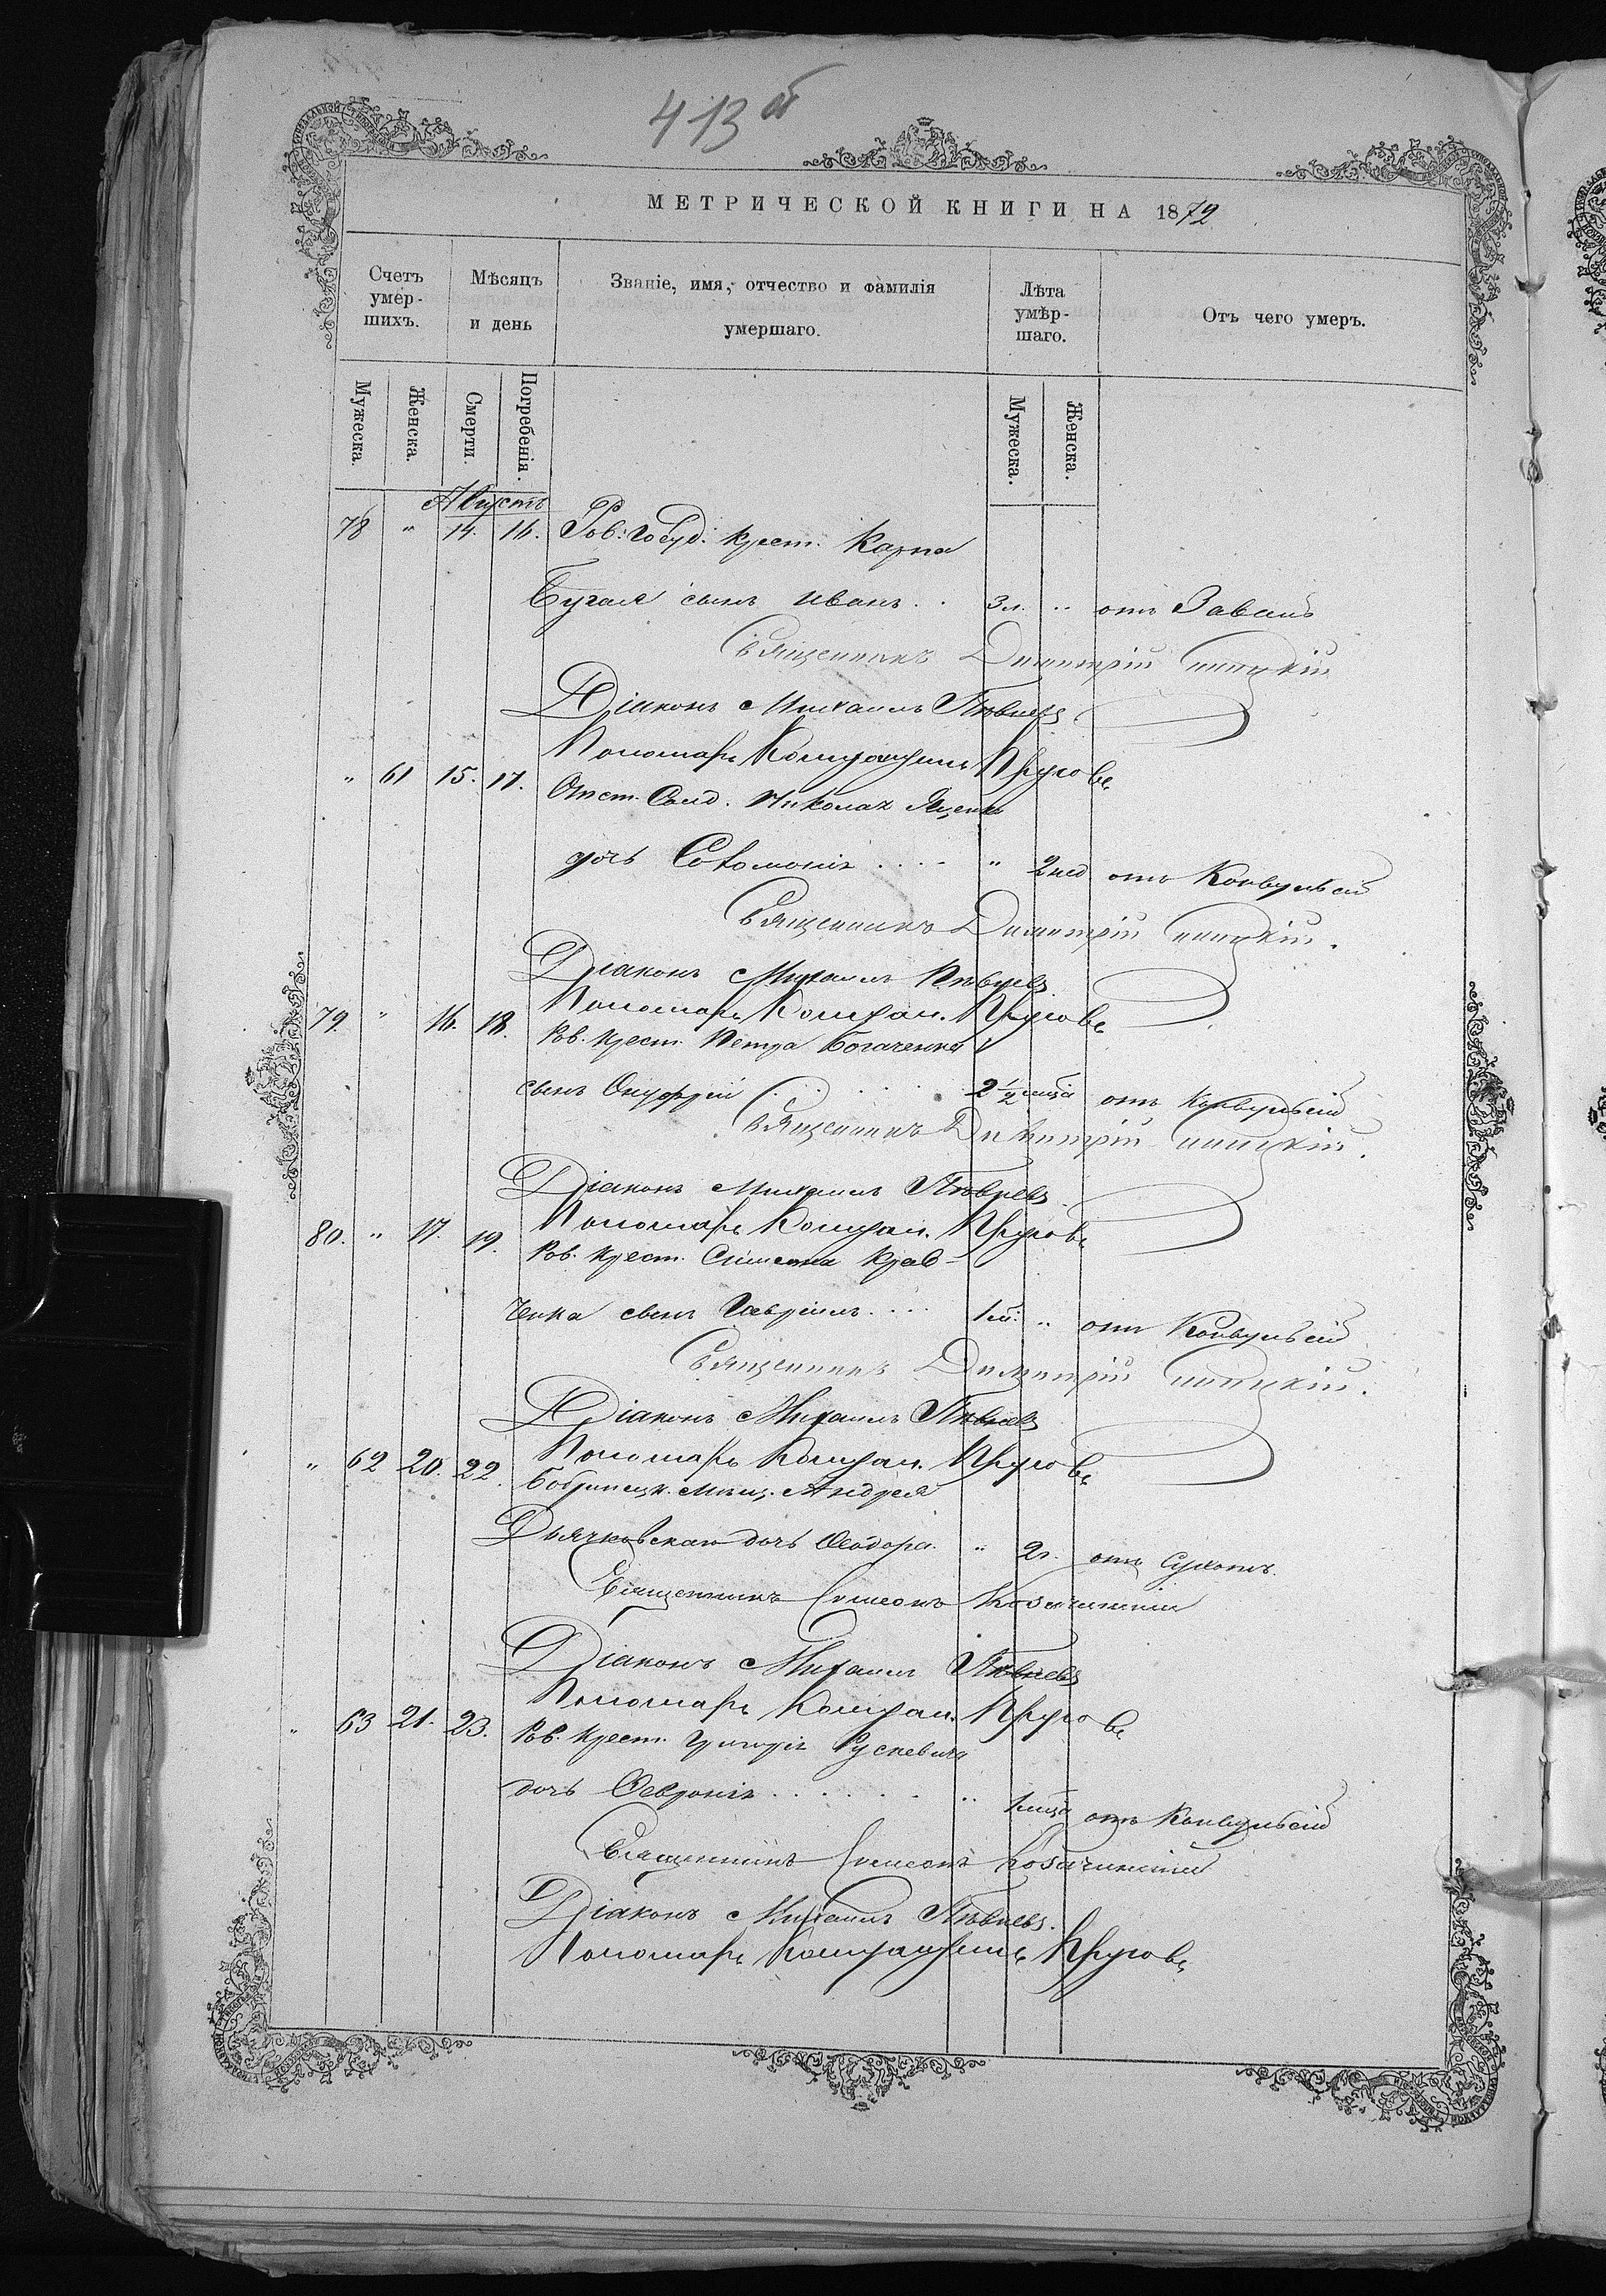 413 об
МЕТРИЧЕСКОЙ КНИГИ НА 1872
Счетъ умер-шихъ.
Мѣсяцъ и день
Званіе, имя, отчество и фамилія умершаго.
Лѣта умѣр-шаго.
Отъ чего умеръ.
Мужеска. Женска. Смерти. Погребенія. Мужеска. Женска.
Августъ
78 " 14. 16. Ров: Госуд: крест. Карпа
Бугая сынъ Иванъ . . 3 л. .. отъ
Священникъ Димитрій
Діаконъ Михаилъ Пѣвнев
Пономарь Кондратъ Круговъ
" 61 15. 17. Отст. Солд. Николая Яценка
дочь Соломонія . . . . " 2 нед отъ Конвульсій
Священникъ Димитрій
Діаконъ Михаилъ Пѣвнев
Пономарь Круговъ
79. " 16. 18. Ров. крест. Петра Богаченка
сынъ Онуфрій . . . . 2 1/2 мца отъ Конвульсій
Священникъ Димитрій
Діаконъ Михаилъ Пѣвнев
Пономарь Круговъ
80. " 17. 19. Ров. крест. Симеона Крав-
ченка сынъ Гавріилъ . . . . 1 м. .. отъ Конвульсій
Священникъ Димитрій
Діаконъ Михаилъ Пѣвнев
Пономарь Круговъ
" 62 20. 22. Бобринецк. мѣщ. Андрея
Дьячковскаго дочь Ѳеодора. " 2 г. отъ Сухотъ.
Священникъ Симеонъ Козачинскій
Діаконъ Михаилъ Пѣвнев
Пономарь Круговъ
" 63 21. 23. Ров. крест. Григорія Рускевича
дочь Февронія . . . . . . .. 1 мца отъ Конвульсій
Священникъ Симеонъ Козачинскій
Діаконъ Михаилъ Пѣвнев.
Пономарь Круговъ